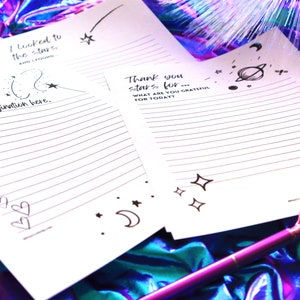 I looked to
the stars,
AND I FOUND
here.
Thank you
stars for...
WHAT ARE YOU GRATEFUL
FOR TODAY?